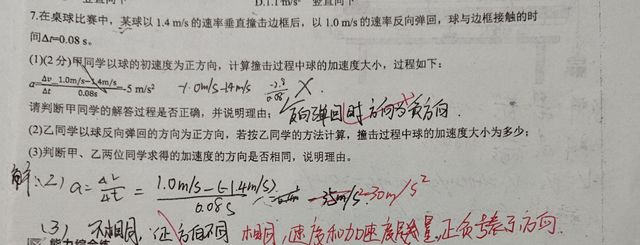 D.1.1 m/s² 竖直向下
7.在桌球比赛中,某球以 1.4 m/s 的速率垂直撞击边框后,以 1.0 m/s 的速率反向弹回,球与边框接触的时
间Δt=0.08 s。
(1)(2 分)甲同学以球的初速度为正方向,计算撞击过程中球的加速度大小,过程如下:
a=Δv/Δt=1.0m/s-1.4m/s/0.08s=-5 m/s² -1.0m/s-1.4m/s
请判断甲同学的解答过程是否正确,并说明理由;反向弹回时方向为负方向.
(2)乙同学以球反向弹回的方向为正方向,若按乙同学的方法计算,撞击过程中球的加速度大小为多少;
(3)判断甲、乙两位同学求得的加速度的方向是否相同,说明理由。
解:(2) a=Δv/Δt=1.0m/s-(-1.4m/s)/0.08s 30m/s²
(3) 不相同,正方向不同 相同,速度和加速度是矢量,正负表示方向.
能力综合练